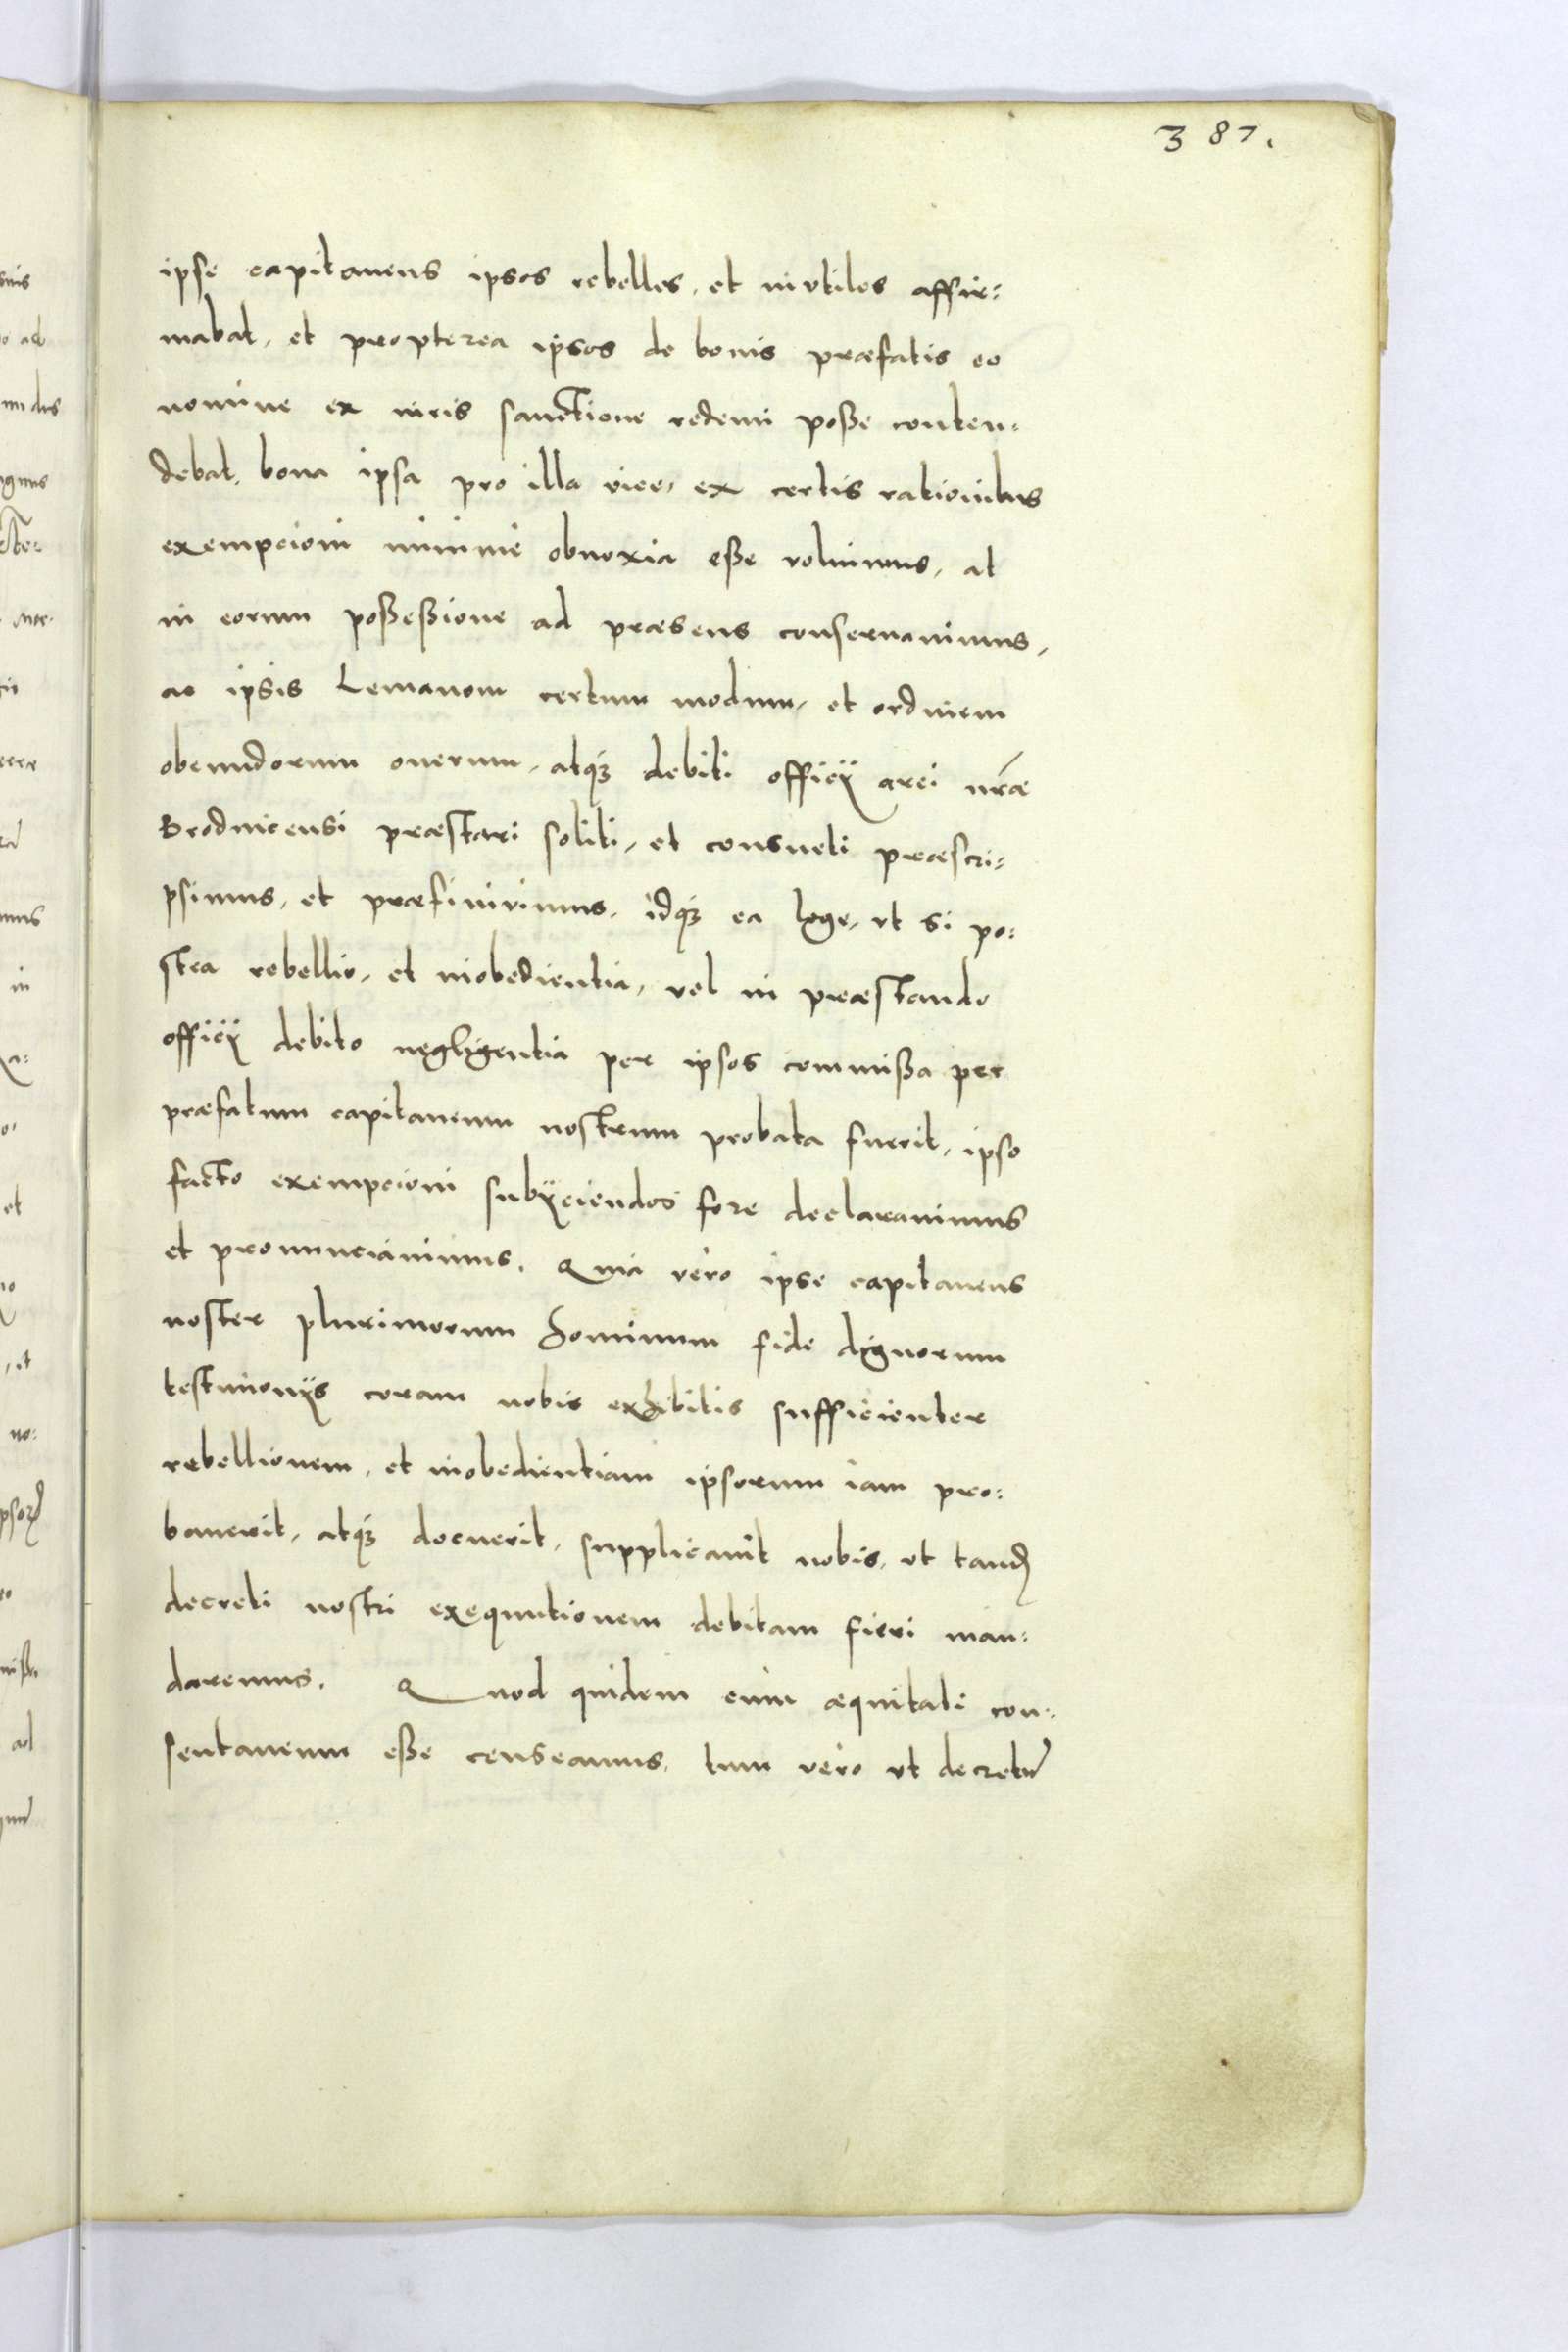 387.
ipse capitaneus ipsos rebelles, et invtiles affir=
mabat, et propterea ipsos de bonis præfatis eo
nomine ex iuris sanctione redemi poße conten=
debat, bona ipsa pro illa vice, ex certis rationibus
exempcioni minime obnoxia eße voluimus, at
in eorum poßeßione ad præsens conseruauimus,
ac ipsis Lemanom certum modum, et ordinem
obeundorum onerum, atqꝫ debiti officij arci nr̃æ
Brodnicensi præstari soliti, et consueti præscri=
psimus, et præfiniuimus, idqꝫ ea lege, vt si po=
stea rebellio, et inobedientia, vel in præstando
officij debito negligentia per ipsos commißa per
præfatum capitaneum nostrum probata fuerit, ipso
facto exempcioni subijciendos fore declarauimus
et pronunciauimus. Quia vero ipse capitaneus
noster plurimorum hominum fide dignorum
testimonijs coram nobis exhibitis sufficienter
rebellionem, et inobedientiam ipsorum iam pro=
bauerit, atqꝫ docuerit, supplicauit nobis, vt tandẽ
decreti nostri exequutionem debitam fieri man=
daremus. Quod quidem cum æquitati con=
sentaneum eße censeamus, tum vero vt decretũ